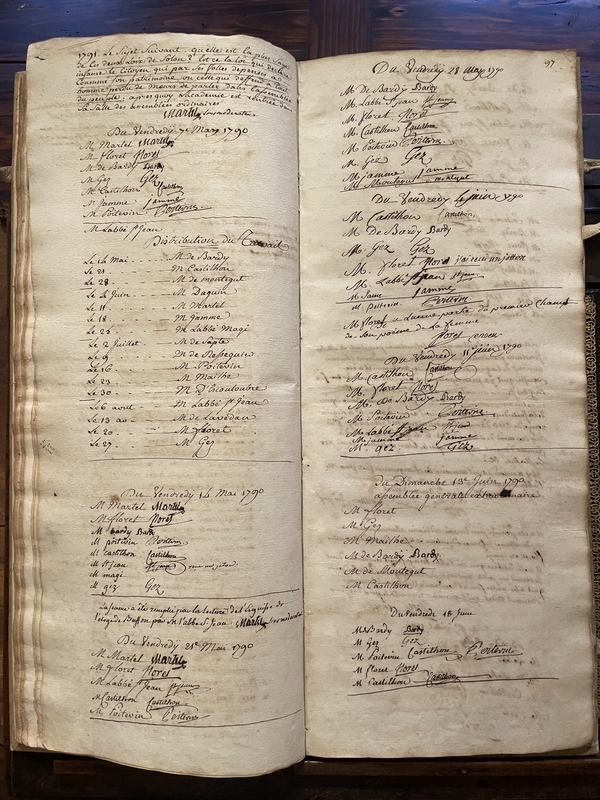 1791. Le Sujet Suivant: quelle est la plus Sage
de Ces deux Loix de Solon? Est ce la loi qui declare
infame le Citoyen qui par Ses folles depenses a
Consumé Son patrimoine ou celle qui deffend a tout
homme perdu de Mœurs de parler dans l'assemblée
du peuple. apres quoy l'academie est rentrée dans
Sa Salle des assemblées ordinaires
Martel, moderateur.
Du Vendredy 7e May 1790
M. Martel Martel
M floret floret
M de Bardy Bardy
M Gez Gez
M Castilhon Castilhon
M Jamme Jamme
M Poitevin Poitevin
M Labbé St Jean
Distribution du Travail
Le 14 Mai M de Bardy
Le 21 M Castilhon
Le 28 M de montegut
Le 4 Juin M Daguin
Le 11 M Martel
Le 18 M Jamme
Le 25 M Labbé Magi
Le 2 Juillet M de Sapte
Le 9 M de Resseguier
Le 16 M Poitevin
Le 23 M Mailhe
Le 30 M D'Escouloubre
Le 6 aout M Labbé St Jean
Le 13 ao M de Lavedan
Le 20 M floret
Le 27 M Gez
Du Vendredy 14 Mai 1790
M Martel Martel
M floret floret
M Bardy Bardy
M poitevin Poitevin
M Castilhon Castilhon
M St Jean St Jean
M magi
M gez Gez
La seance a été remplie par la lecture de l'Esquisse de
l'eloge de Buffon par Mr l'abbé St Jean Martel, moderateur
Du Vendredy 21e Mai 1790
M Martel Martel
M floret floret
M Labbé St Jean St Jean
M Castilhon Castilhon
M Poitevin Poitevin
97
Du Vendredy 28 May 1790
M De Bardy Bardy
M. Labbé St Jean St Jean
M. floret floret
M Castilhon Castilhon
M. Poitevin Poitevin
M. Gez Gez
M jamme jamme
M. Montegut montegut
Du Vendredy 4e juin 1790
M Castilhon Castilhon
M De Bardy Bardy
M. Gez Gez
M. floret floret j'ai recu un jetton
M. Labbé St Jean St Jean
M. jamme jamme
M. Poitevin Poitevin
M floret a Lu une partie du premier Chant
de Son poëme de La femme
floret
Du Vendredy 11e juin 1790
M Castilhon Castilhon
M. floret floret
M. De Bardy Bardy
M. Poitevin Poitevin
M. Labbé St Jean St Jean
M. jamme jamme
M. gez Gez
du Dimanche 13e Juin 1790
assemblée generale extraordinaire
M floret
M Gez
M Mailhe
M de Bardy Bardy
M de Montegut
M Castilhon
Du Vendredi 18 Juin
M Bardy Bardy
M Gez Gez
M Poitevin Castilhon Poitevin
M floret floret
M Castilhon Castilhon